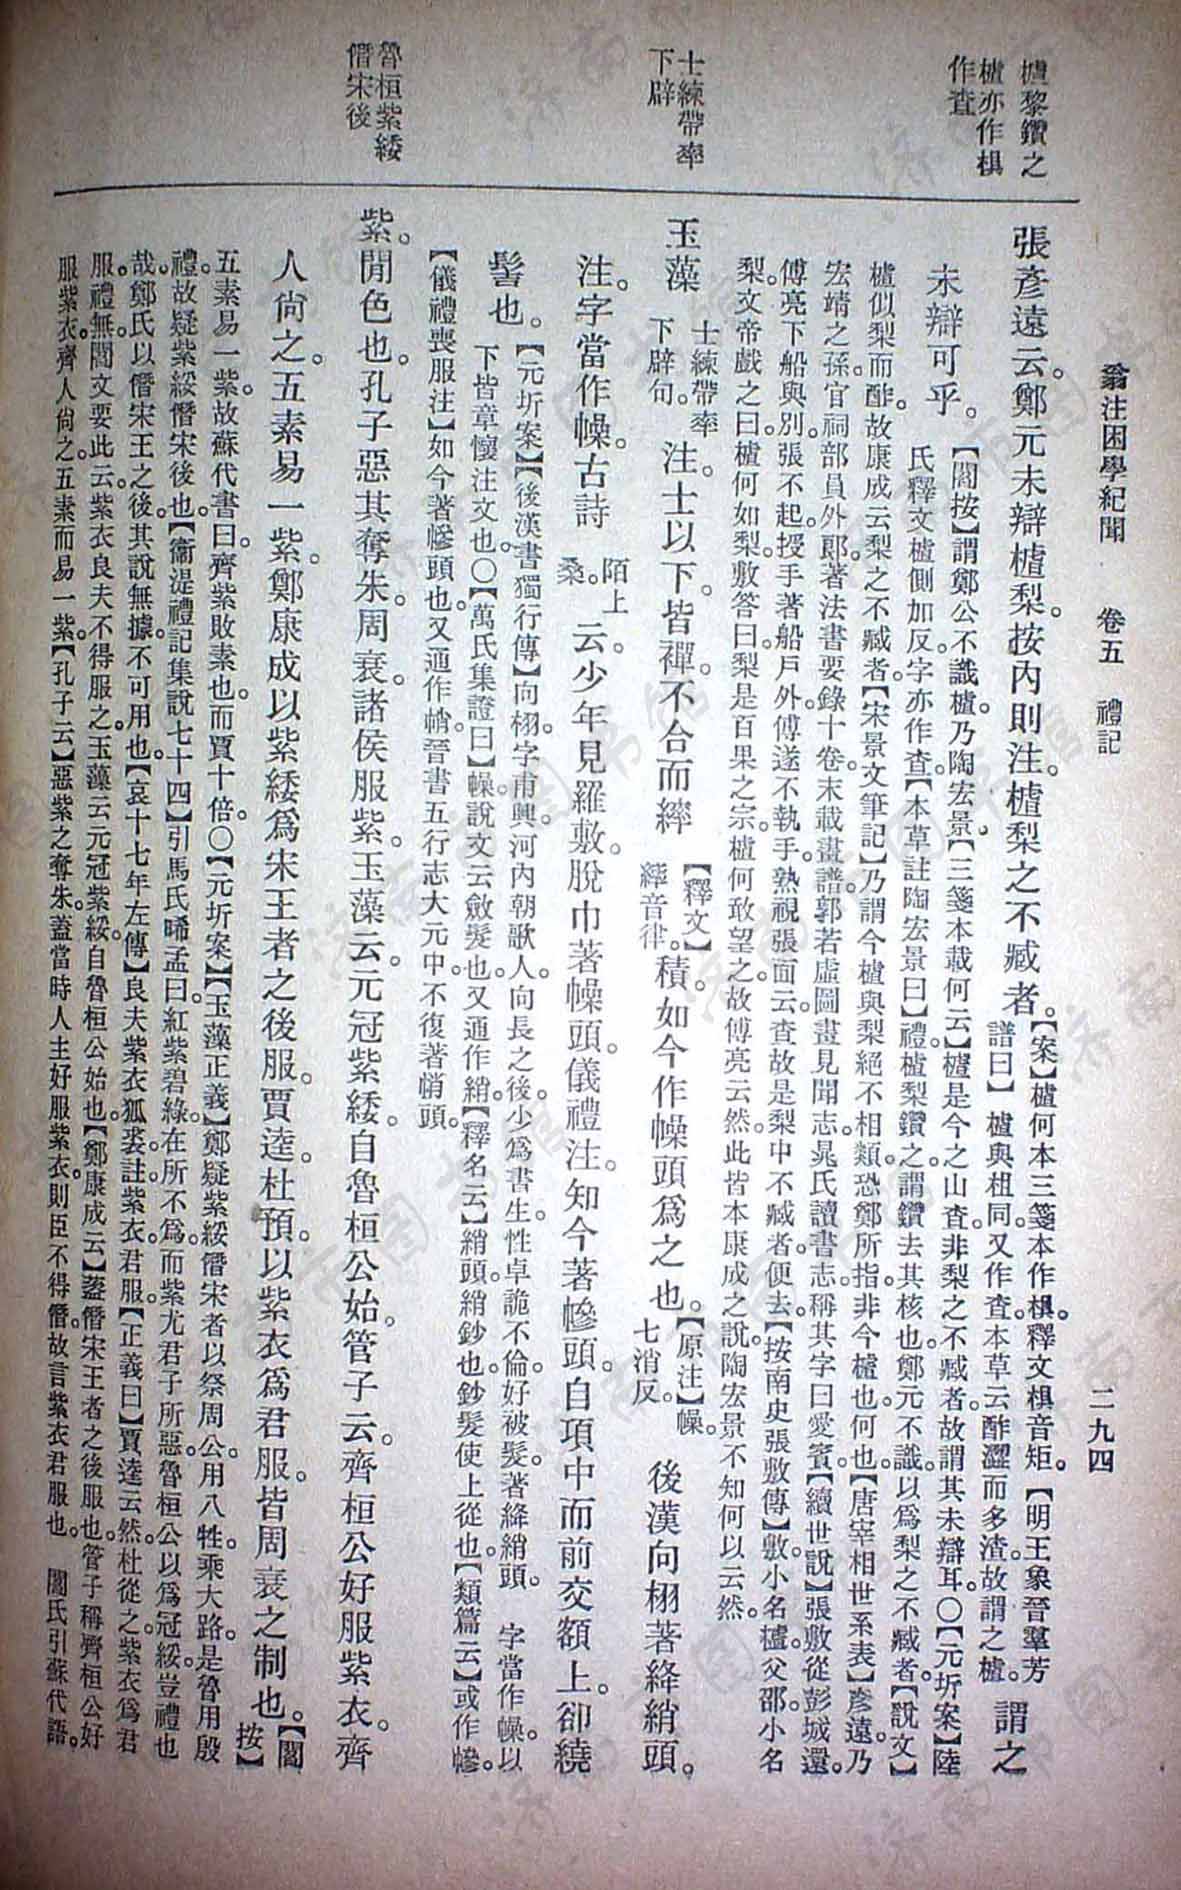 翁注困學紀聞　卷五　禮記　二九四
樝黎鑽之
樝亦作柤
作査
士練帶率
下辟
魯桓紫緌
僭宋後
張彥遠云。鄭元未辯樝梨。按內則注。樝梨之不臧者。【案】樝何本三箋本作椇。釋文椇音矩。【明王象晉羣芳
譜曰】樝與柤同。又作査。本草云。酢澀而多渣。故謂之樝。謂之
未辯可乎。【閻按】謂鄭公不識樝。乃陶宏景。【三箋本載何云】樝是今之山査。非梨之不臧者。故謂其未辯耳。○【元圻案】陸
氏釋文樝側加反。字亦作査。【本草註陶宏景曰】禮樝梨鑽之。謂鑽去其核也。鄭元不識。以爲梨之不臧者。【說文】
樝似梨而酢。故康成云梨之不臧者。【宋景文筆記】乃謂今樝與梨絕不相類。恐鄭所指。非今樝也。何也。【唐宰相世系表】彥遠。乃
宏靖之孫。官祠部員外郞。著法書要錄十卷。末載畫譜。郭若虛圖畫見聞志。晁氏讀書志。稱其字曰愛賓。【續世說】張敷從彭城還。
傅亮下船與別。張不起。授手著船戶外。傅遂不執手。熟視張面云。査故是梨中不臧者。便去。【按南史張敷傳】敷小名樝。父邵。小名
梨。文帝戲之曰。樝何如梨。敷答曰。梨是百果之宗。樝何敢望之。故傅亮云然。此皆本康成之說。陶宏景不知何以云然。
玉藻　士練帶率
下辟句。注。士以下。皆禪。不合而繂【釋文】
繂音律。積。如今作幧頭爲之也。【原注】幧。
七消反。　後漢向栩著絳綃頭。
注。字當作幧。古詩　陌上
桑。　云。少年見羅敷。脫巾著幧頭。儀禮注。知今著幓頭。自項中而前交額上。卻繞
髻也。【元圻案】【後漢書獨行傳】向栩。字甫興。河內朝歌人。向長之後。少爲書生。性卓詭不倫。好被髮。著絳綃頭。　字當作幧。以
下皆章懷注文也。○【萬氏集證曰】幧。說文云斂髮也。又通作綃。【釋名云】綃頭。綃鈔也。鈔髮使上從也。【類篇云】或作幓。
【儀禮喪服注】如今著幓頭也。又通作帩。晉書五行志大元中。不復著帩頭。
紫。閒色也。孔子惡其奪朱。周衰。諸侯服紫。玉藻云。元冠紫緌。自魯桓公始。管子云。齊桓公好服紫衣。齊
人尙之。五素易一紫。鄭康成以紫緌爲宋王者之後服。賈逵。杜預。以紫衣爲君服。皆周衰之制也。【閻
按】
五素易一紫。故蘇代書曰。齊紫敗素也。而賈十倍。○【元圻案】【玉藻正義】鄭疑紫緌僭宋者。以祭周公。用八牲。乘大路。是魯用殷
禮。故疑紫緌僭宋後也。【衞湜禮記集說七十四】引馬氏晞孟曰。紅紫碧綠。在所不爲。而紫尤君子所惡。魯桓公以爲冠緌。豈禮也
哉。鄭氏以僭宋王之後。其說無據。不可用也。【哀十七年左傳】良夫紫衣狐裘。註紫衣。君服。【正義曰】賈逵云然。杜從之。紫衣爲君
服。禮無。閒文要此云。紫衣良夫不得服之。玉藻云。元冠紫緌。自魯桓公始也。【鄭康成云】蓋僭宋王者之後服也。管子稱齊桓公好
服紫衣。齊人尙之。五素而易一紫。【孔子云】惡紫之奪朱。蓋當時人主好服紫衣。則臣不得僭。故言紫衣君服也。　閻氏引蘇代語。